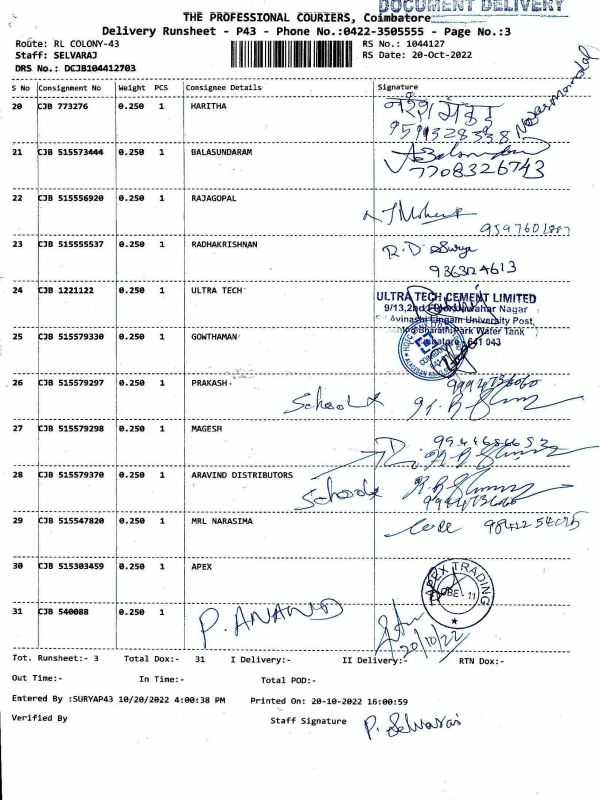 DOCUMENT DELIVERY
THE PROFESSIONAL COURIERS, Coimbatore
Delivery Runsheet - P43 - Phone No.:0422-3505555 - Page No.:3
Route: RL COLONY-43
RS No.: 1044127
Staff: SELVARAJ
RS Date: 20-Oct-2022
DRS No.: DCJB104412703
S No Consignment No Weight PCS Consignee Details Signature
20 CJB 773276 0.250 1 HARITHA
21 CJB 515573444 0.250 1 BALASUNDARAM
7708326743
22 CJB 515556920 0.250 1 RAJAGOPAL
23 CJB 515555537 0.250 1 RADHAKRISHNAN
R.D. Surya
24 CJB 1221122 0.250 1 ULTRA TECH
ULTRA TECH CEMENT LIMITED
Avinashi Lingam University Post,
Bharathi Park Water Tank
641 043
25 CJB 515579330 0.250 1 GOWTHAMAN
26 CJB 515579297 0.250 1 PRAKASH
School
27 CJB 515579298 0.250 1 MAGESH
28 CJB 515579370 0.250 1 ARAVIND DISTRIBUTORS
School
29 CJB 515547820 0.250 1 MRL NARASIMA
30 CJB 515303459 0.250 1 APEX
APEX TRADING
31 CJB 540088 0.250 1
P. ANAND
20/10/22
Tot. Runsheet:- 3 Total Dox:- 31 I Delivery:- II Delivery:- RTN Dox:-
Out Time:- In Time:- Total POD:-
Entered By :SURYAP43 10/20/2022 4:00:38 PM Printed On: 20-10-2022 16:00:59
Verified By Staff Signature P. Selvaraj